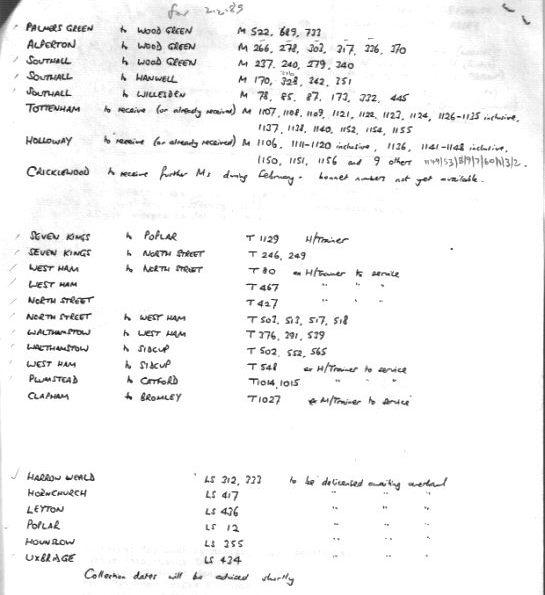 for 2.2.85
PALMERS GREEN to WOOD GREEN M 522, 689, 733
ALPERTON to WOOD GREEN M 266, 278, 303, 317, 336, 370
SOUTHALL to WOOD GREEN M 237, 240, 279, 340
SOUTHALL to HANWELL M 170, 328, 342, 351
SOUTHALL to WILLESDEN M 78, 85, 87, 173, 332, 445
TOTTENHAM to receive (or already received) M 1107, 1108, 1109, 1121, 1122, 1123, 1124, 1126-1135 inclusive,
1137, 1138, 1140, 1152, 1154, 1155
HOLLOWAY to receive (or already received) M 1106, 1111-1120 inclusive, 1136, 1141-1148 inclusive,
1150, 1151, 1156 and 9 others
CRICKLEWOOD to receive further Ms during February - bonnet numbers not yet available.
SEVEN KINGS to POPLAR T 1129 H/Trainer
SEVEN KINGS to NORTH STREET T 246, 249
WEST HAM to NORTH STREET T 80 ex H/Trainer to service
WEST HAM T 467 " " "
NORTH STREET T 427 " " "
NORTH STREET to WEST HAM T 503, 513, 517, 518
WALTHAMSTOW to WEST HAM T 376, 391, 539
WALTHAMSTOW to SIDCUP T 502, 552, 565
WEST HAM to SIDCUP T 548 ex H/Trainer to service
PLUMSTEAD to CATFORD T 1014, 1015 " " "
CLAPHAM to BROMLEY T 1027 ex M/Trainer to service
HARROW WEALD LS 312, 333 to be delicensed awaiting overhaul
HORNCHURCH LS 417 " " "
LEYTON LS 436 " " "
POPLAR LS 12 " " "
HOUNSLOW LS 355 " " "
UXBRIDGE LS 434 " " "
Collection dates will be advised shortly